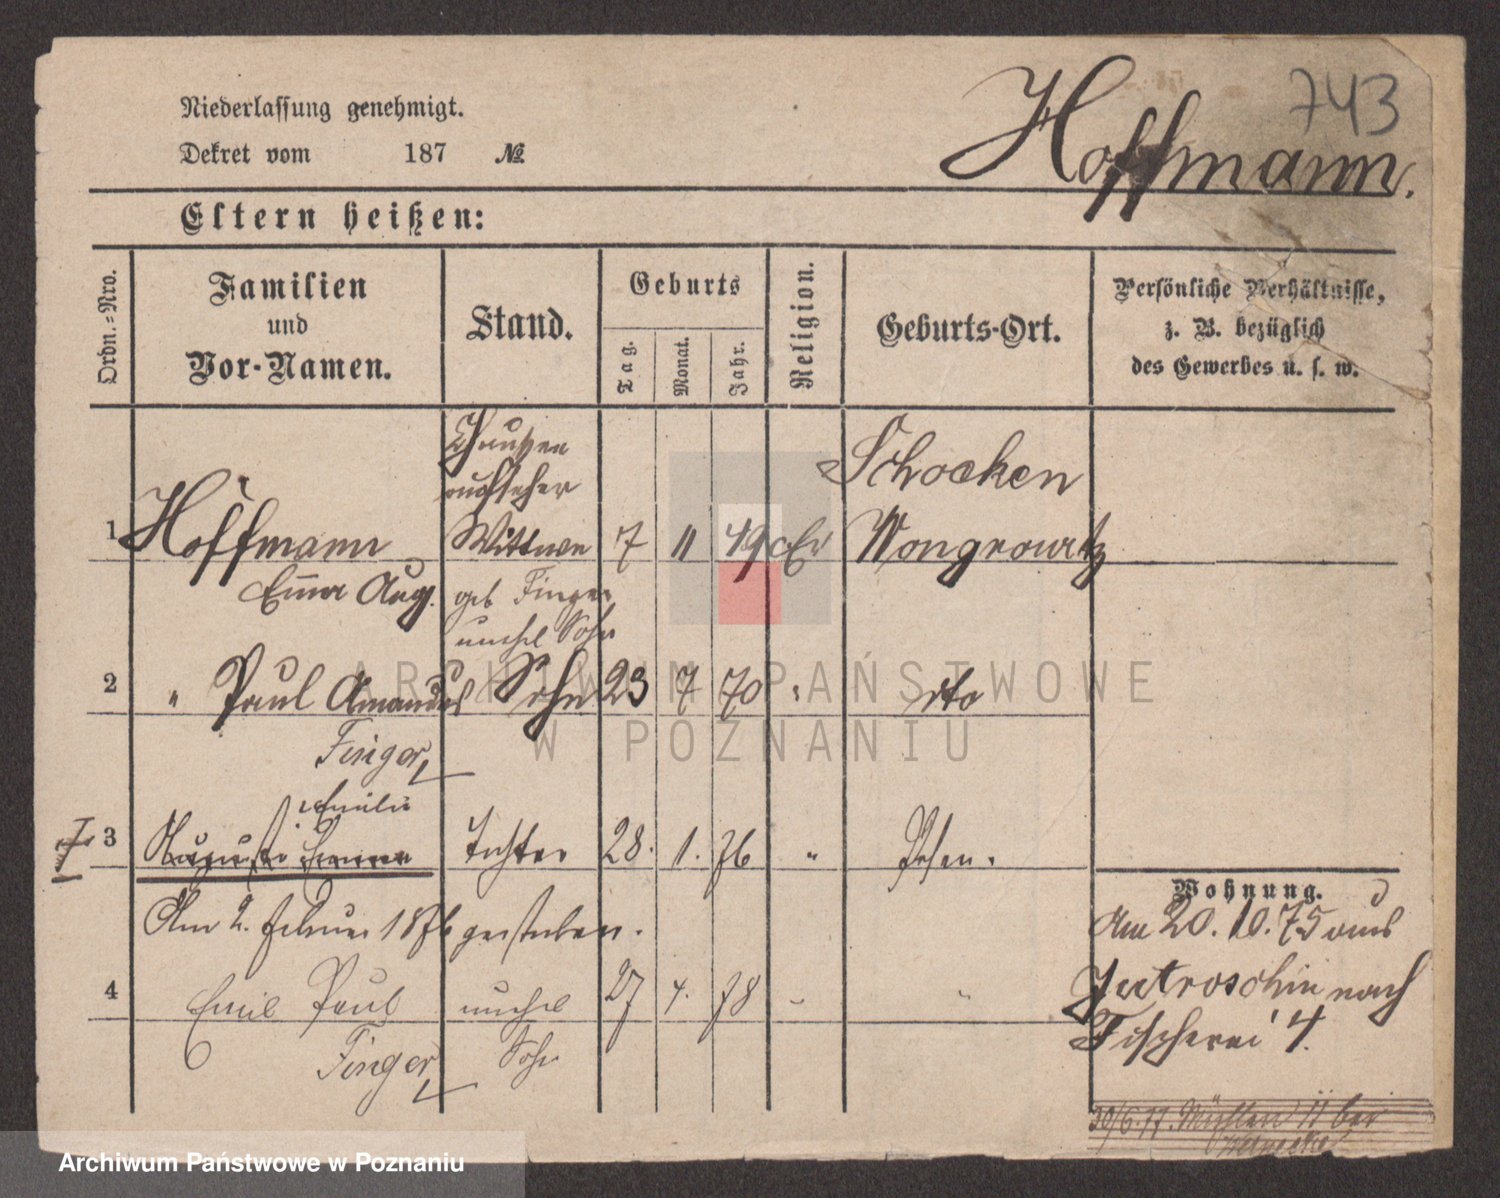 743
Hoffmann.
Niederlassung genehmigt.
Dekret vom 187 №
Eltern heißen:
Ordn.-Nro.
Familien
und
Vor-Namen.
Stand.
Geburts
Tag.
Monat.
Jahr.
Religion.
Geburts-Ort.
Persönliche Verhältnisse,
z. B. bezüglich
des Gewerbes u. s. w.
Chaussee
aufseher
Schocken
1 Hoffmann Wittwe 7 11 49 Ev Wongrowitz
Emma Aug. geb Finger
unehel Sohn
2 " Paul Amandus Sohn 23 7 70 " dto
Finger
Emilie
3 Auguste Emma Tochter 28. 1. 76 " Posen.
Am 2. Februar 1876 gestorben.
4 Emil Paul unehel 27 4. 78 " "
Finger Sohn
Wohnung.
Am 20. 10. 75 aus
Jutroschin nach
Fischerei 4.
30/6. 77. Mühlen 11 bei
ARCHIWUM PAŃSTWOWE
W POZNANIU
Archiwum Państwowe w Poznaniu